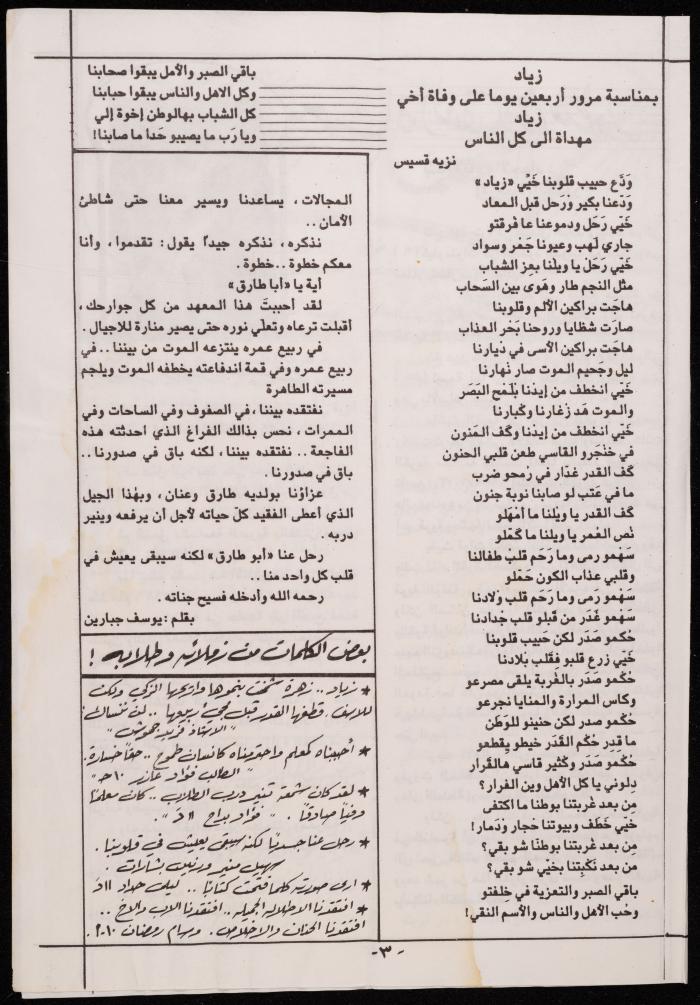 زياد
بمناسبة مرور أربعين يوما على وفاة أخي
زياد
مهداة الى كل الناس
نزيه قسيس
وَدَّع حبيب قلوبنا خَيّي «زياد»
وَدّعنا بكير وْرَحل قبل المعاد
خَيّي رَحَل ودموعنا ما فرقتو
جاري لَهب وعيونا جَمْر وسواد
خَيّي رَحَلْ يا ويلْنا بعِز الشباب
مثل النجم طار وهَوى بين السَحاب
هاجَت براكين الألم وقلوبنا
صارَت شظايا وروحنا بَحْر العذاب
هاجَت براكين الأسى في ديارنا
ليل وجَحيم الموت صار نهارنا
خَيّي انخطف من إيدنا بلَمْح البَصَر
والموت هَد زْغارنا وكْبارنا
خَيّي انخطف من إيدنا وكَف المَنون
في خنْجَرو القاسي طعن قلبي الحنون
كَف القدر غدّار في رُمحو ضرب
ما في عَتب لو صابنا نوبة جنون
كَف القدر يا ويْلنا ما أمْهَلو
نُص العُمر يا ويلنا ما كَمْلو
سَهْمو رمى وما رَحَم قلبْ طفالنا
وقلبي عذاب الكون حَمْلو
سَهْمو رَمى وما رَحَم قلب وْلادنا
سَهْمو غَدَر من قَبلو قلب جْدادنا
حُكمو صَدَر لكن حَبيب قلوبنا
خَيّي زرع قلبو فِقَلب بْلادنا
حُكمو صَدَر بالغُربة يلقى مصرعو
وكاس المرارة والمنايا نجرعو
حُكمو صدر لكن حنينو للوَطَن
ما قِدِر حُكم القَدَر خيطو يِقطعو
حُكمو صَدَر وكْثير قاسي هالقَرار
دِلوني يا كل الأهل وين الفرار؟
مِن بعد غربتنا بوطنا ما اكتفى
خيّي خَطَف وبيوتنا حْجار ودَمار!
مِن بعد غُربتنا بوطنّا شو بقي؟
من بعد نَكبِتنا بخَيّي شو بقي؟
باقي الصبر والتعزية في خِلفتو
وحُب الأهل والناس والأسم النقي!
باقي الصبر والأمل يبقوا صحابنا
وكل الاهل والناس يبقوا حبابنا
كل الشباب بهالوطن إخوة إلي
ويا رَب ما يصيبو حَدا ما صابنا!
المجالات، يساعدنا ويسير معنا حتى شاطئ
الأمان..
نذكره، نذكره جيداً يقول: تقدموا، وأنا
معكم خطوة.. خطوة.
أية يا «أبا طارق»
لقد أحببتَ هذا المعهد من كل جوارحك،
أقبلت ترعاه وتعلّي نوره حتى يصير منارة للاجيال.
في ربيع عمره ينتزعه الموت من بيننا.. في
ربيع عمره وفي قمة اندفاعته يخطفه الموت ويلجم
مسيرته الطاهرة
نفتقده بيننا، في الصفوف وفي الساحات وفي
الممرات، نحس بذالك الفراغ الذي احدثته هذه
الفاجعة.. نفتقده بيننا، لكنه باق في صدورنا..
باق في صدورنا.
عزاؤنا بولديه طارق وعنان، وبهذا الجيل
الذي أعطى الفقيد كلّ حياته لأجل أن يرفعه وينير
دربه.
رحل عنا «أبو طارق» لكنه سيبقى يعيش في
قلب كل واحد منا..
رحمه الله وأدخله فسيح جناته.
بقلم: يوسف جبارين
بعض الكلمات من زملائه وطلابه!
* زياد.. زهرة شمخت بنموها واريجها الزكي ولكن
للاسف. قطفها القدر قبل مجيء ربيعها.. لن ننساك!
"الاستاذ فريد حموش"
* أحببناه كمعلم واحترمناه كإنسان طموح.. حقاً خسارة.
"الطالب فؤاد عازر ١٠ح"
* لقد كان شمعة تنير درب الطلاب.. كان معلماً
وفياً صادقاً. "فؤاد بداح ١١د".
* رحل عنا جسدياً لكنه سيبقى يعيش في قلوبنا.
سهيل منير ورنين بشارات.
* ارى صورته كلما فتحت كتاباً.. ليلى حداد ١١د
* افتقدنا الاطلاله الجميله.. افتقدنا الاب والاخ..
افتقدنا الحنان والاخلاص. وسام رمضان ١٠-٢.
-٣-